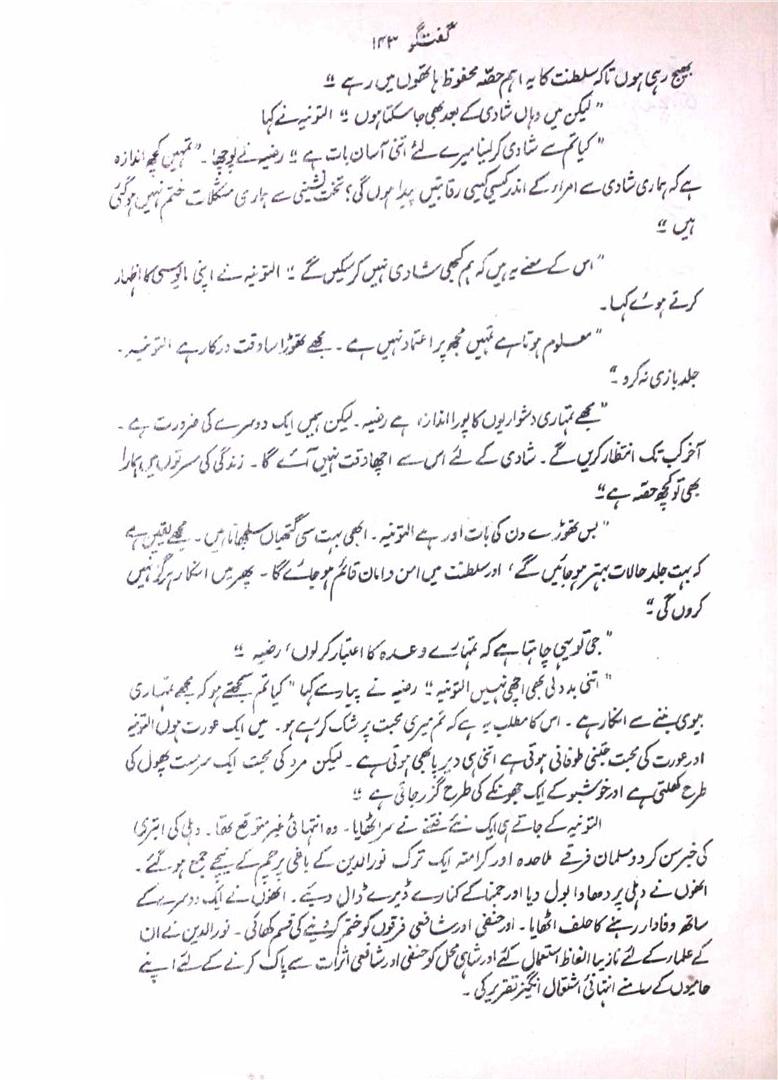 گفتگو ۱۴۳
بھیج رہی ہوں تاکہ سلطنت کا یہ اہم حصّہ محفوظ ہاتھوں میں رہے ‘‘
’’ لیکن میں وہاں شادی کے بعد بھی جا سکتا ہوں ‘‘ التونیہ نے کہا
’’ کیا تم سے شادی کر لینا میرے لئے اتنی آسان بات ہے ‘‘ رضیہ نے پوچھا ۔ ’’ تمہیں کچھ اندازہ
ہے کہ ہماری شادی سے امراء کے اندر کیسی کیسی رقابتیں پیدا ہوں گی؟ تخت نشینی سے ہماری مشکلات ختم نہیں ہو گئی
ہیں ‘‘
’’ اس کے معنے یہ ہیں کہ ہم کبھی شادی نہیں کر سکیں گے ‘‘ التونیہ نے اپنی مایوسی کا اظہار
کرتے ہوئے کہا۔
’’ معلوم ہوتا ہے تمہیں مجھ پر اعتماد نہیں ہے ۔ مجھے تھوڑا سا وقت درکار ہے التونیہ ۔
جلد بازی نہ کرو ۔‘‘
’’ مجھے تمہاری دشواریوں کا پورا اندازہ ہے رضیہ ۔ لیکن ہمیں ایک دوسرے کی ضرورت ہے ۔
آخر کب تک انتظار کریں گے ۔ شادی کے لئے اس سے اچھا وقت نہیں آئے گا ۔ زندگی کی مسرتوں میں ہمارا
بھی تو کچھ حصّہ ہے ‘‘
’’ بس تھوڑے دن کی بات اور ہے التونیہ ۔ ابھی بہت سی گتھیاں سلجھانا ہیں ۔ مجھے یقین ہے
کہ بہت جلد حالات بہتر ہو جائیں گے ، اور سلطنت میں امن و امان قائم ہو جائے گا ۔ پھر میں انکار ہرگز نہیں
کروں گی ۔‘‘
’’ جی تو یہی چاہتا ہے کہ تمہارے وعدہ کا اعتبار کر لوں ، رضیہ ‘‘
’’ اتنی بد دلی بھی اچھی نہیں التونیہ ‘‘ رضیہ نے پیار سے کہا ’’ کیا تم سمجھتے ہو کہ مجھے تمہاری
بیوی بننے سے انکار ہے ۔ اس کا مطلب یہ ہے کہ تم میری محبت پر شک کر رہے ہو ۔ میں ایک عورت ہوں التونیہ
اور عورت کی محبت جتنی طوفانی ہوتی ہے اتنی ہی دیرپا بھی ہوتی ہے ۔ لیکن مرد کی محبت ایک سرمست پھول کی
طرح کھلتی ہے اور خوشبو کے ایک جھونکے کی طرح گزر جاتی ہے ‘‘
التونیہ کے جاتے ہی ایک نئے فتنے نے سر اٹھایا ۔ وہ انتہائی غیر متوقع تھا ۔ دہلی کی ابتری
کی خبر سن کر دو مسلمان فرقے ملاحدہ اور کرامتہ ایک ترک نورالدین کے باغی پرچم کے نیچے جمع ہو گئے ۔
انھوں نے دہلی پر دھاوا بول دیا اور جمنا کے کنارے ڈیرے ڈال دیئے ۔ انھوں نے ایک دوسرے کے
ساتھ وفادار رہنے کا حلف اٹھایا ۔ اور حنفی اور شافعی فرقوں کو ختم کر دینے کی قسم کھائی ۔ نورالدین نے ان
کے علماء کے لئے نازیبا الفاظ استعمال کئے اور شاہی محل کو حنفی اور شافعی اثرات سے پاک کرنے کے لئے اپنے
حامیوں کے سامنے انتہائی اشتعال انگیز تقریر کی ۔